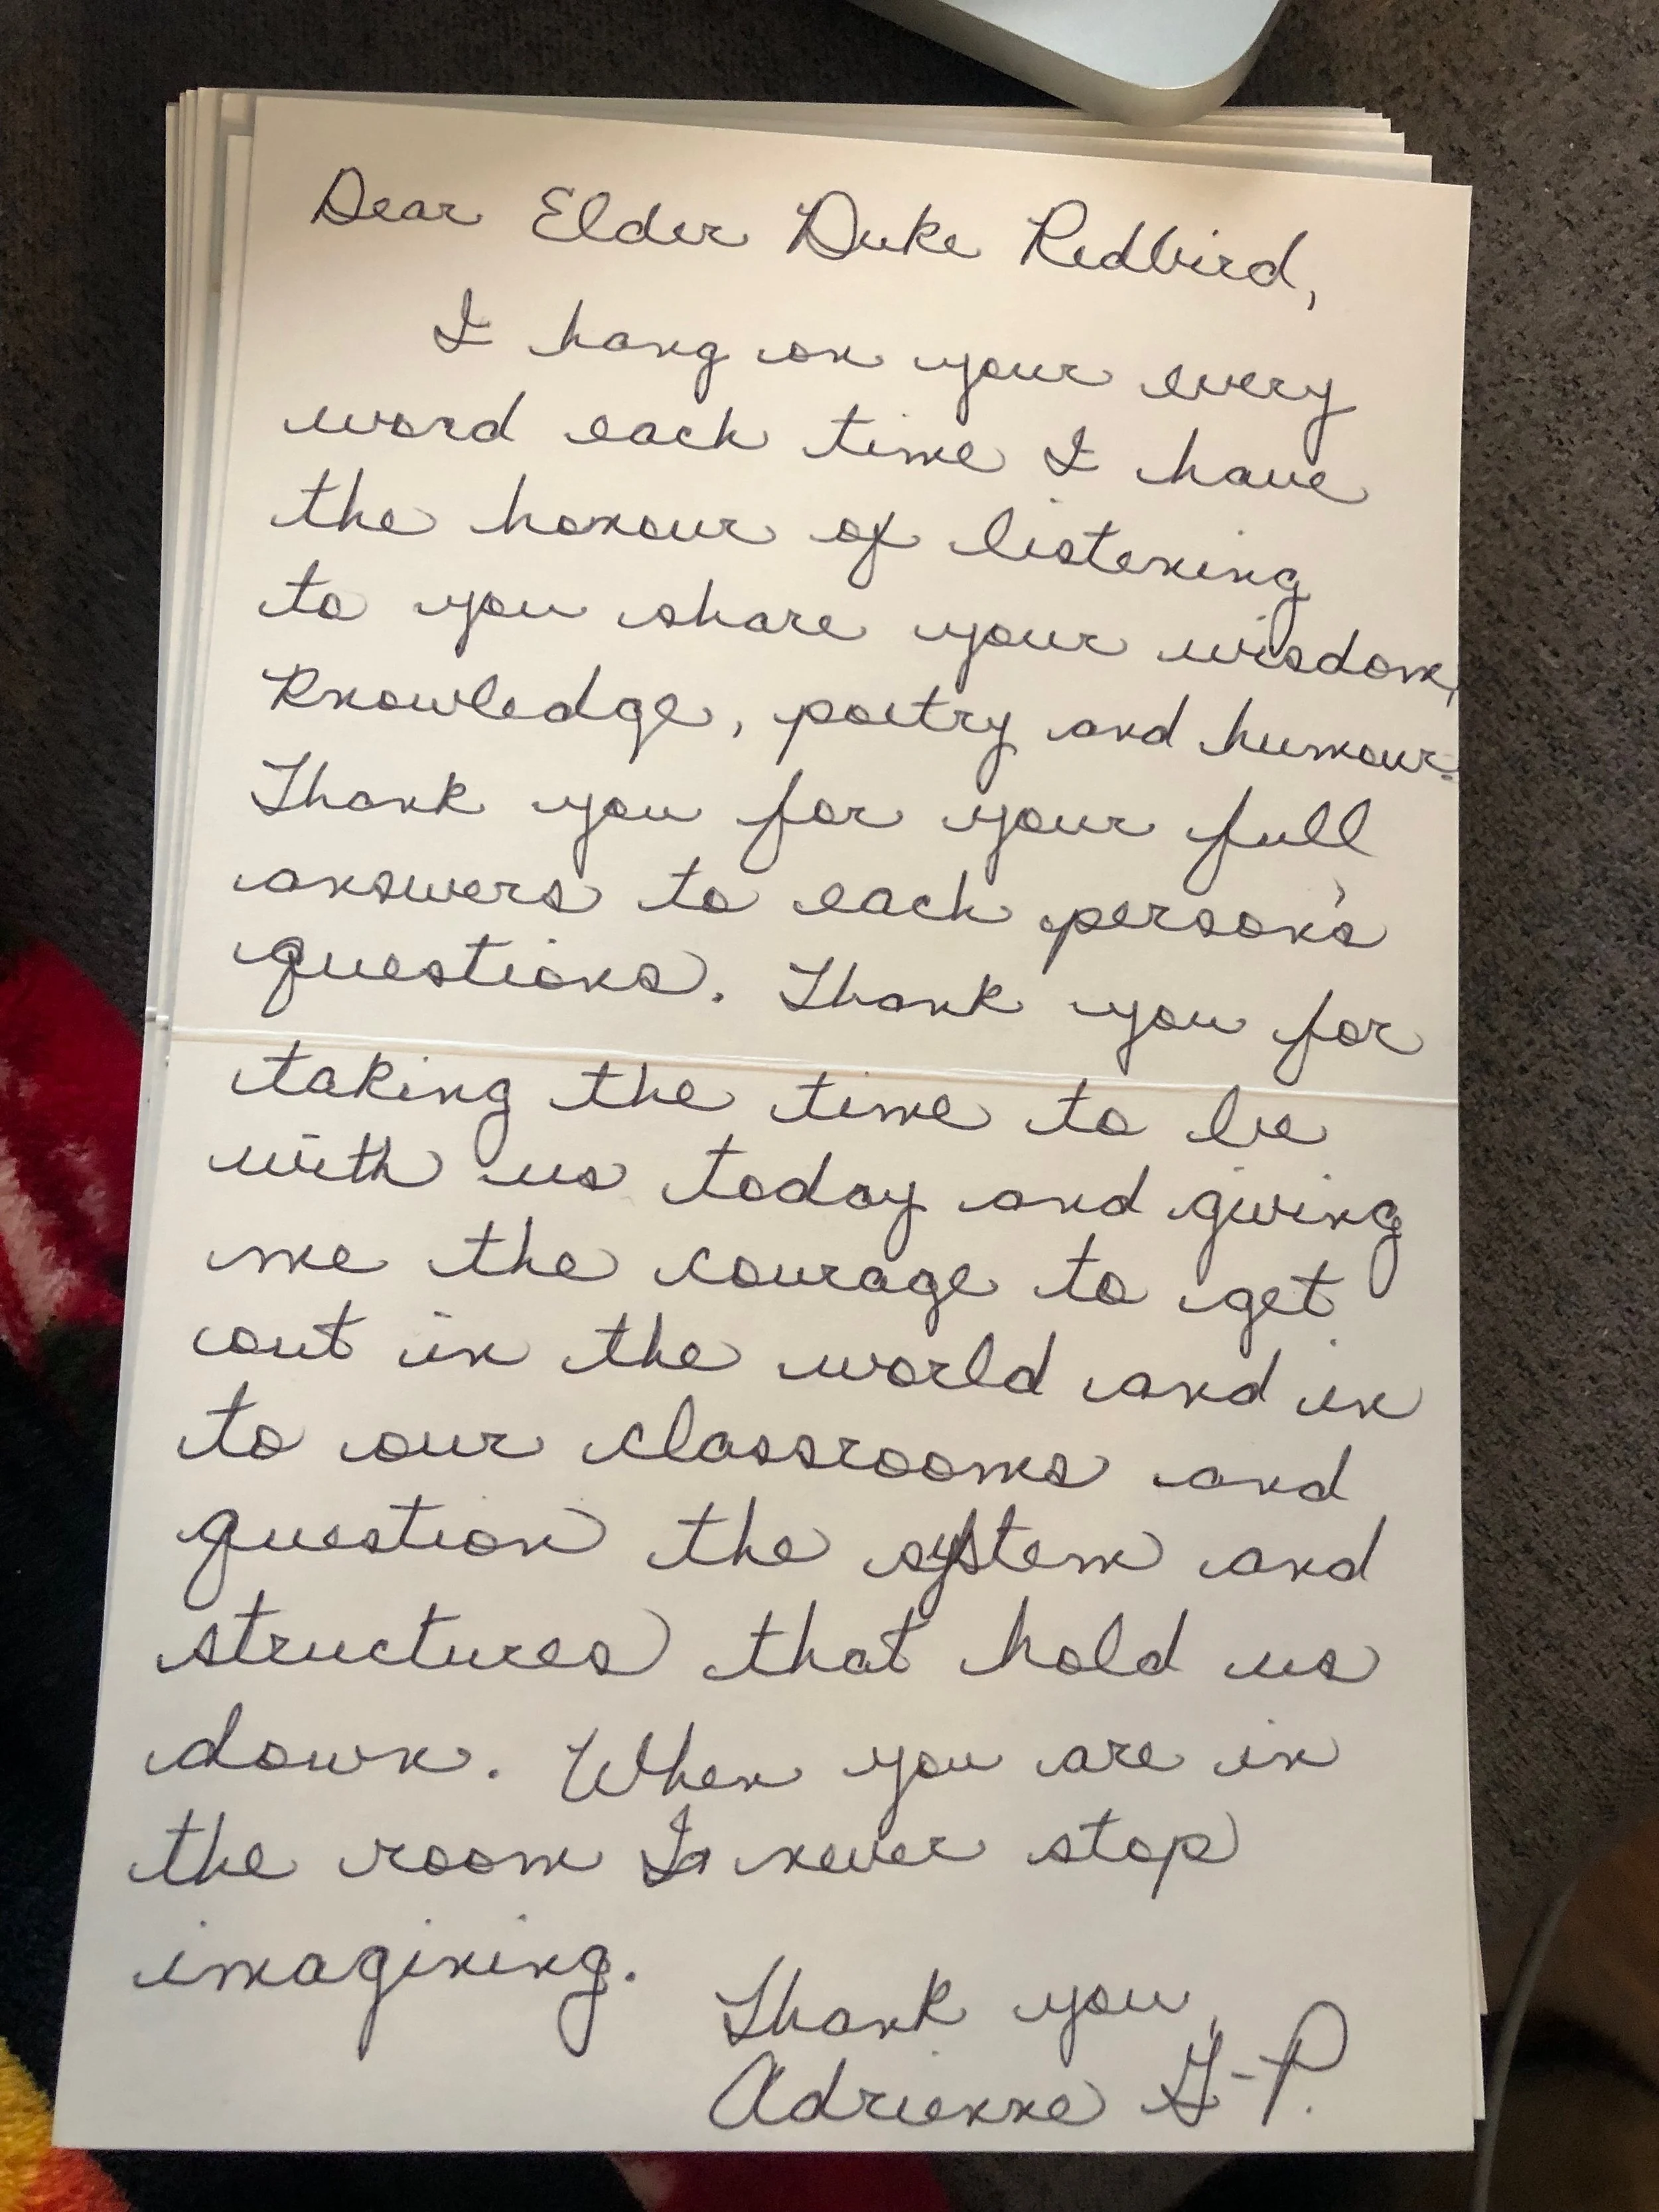 Dear Elder Duke Redbird,
I hang on your every
word each time I have
the honour of listening
to you share your wisdom,
knowledge, poetry and humour.
Thank you for your full
answers to each person's
questions. Thank you for
taking the time to be
with us today and giving
me the courage to get
out in the world and in
to our classrooms and
question the system and
structures that hold us
down. When you are in
the room I never stop
imagining.
Thank you,
Adrienne G-P.